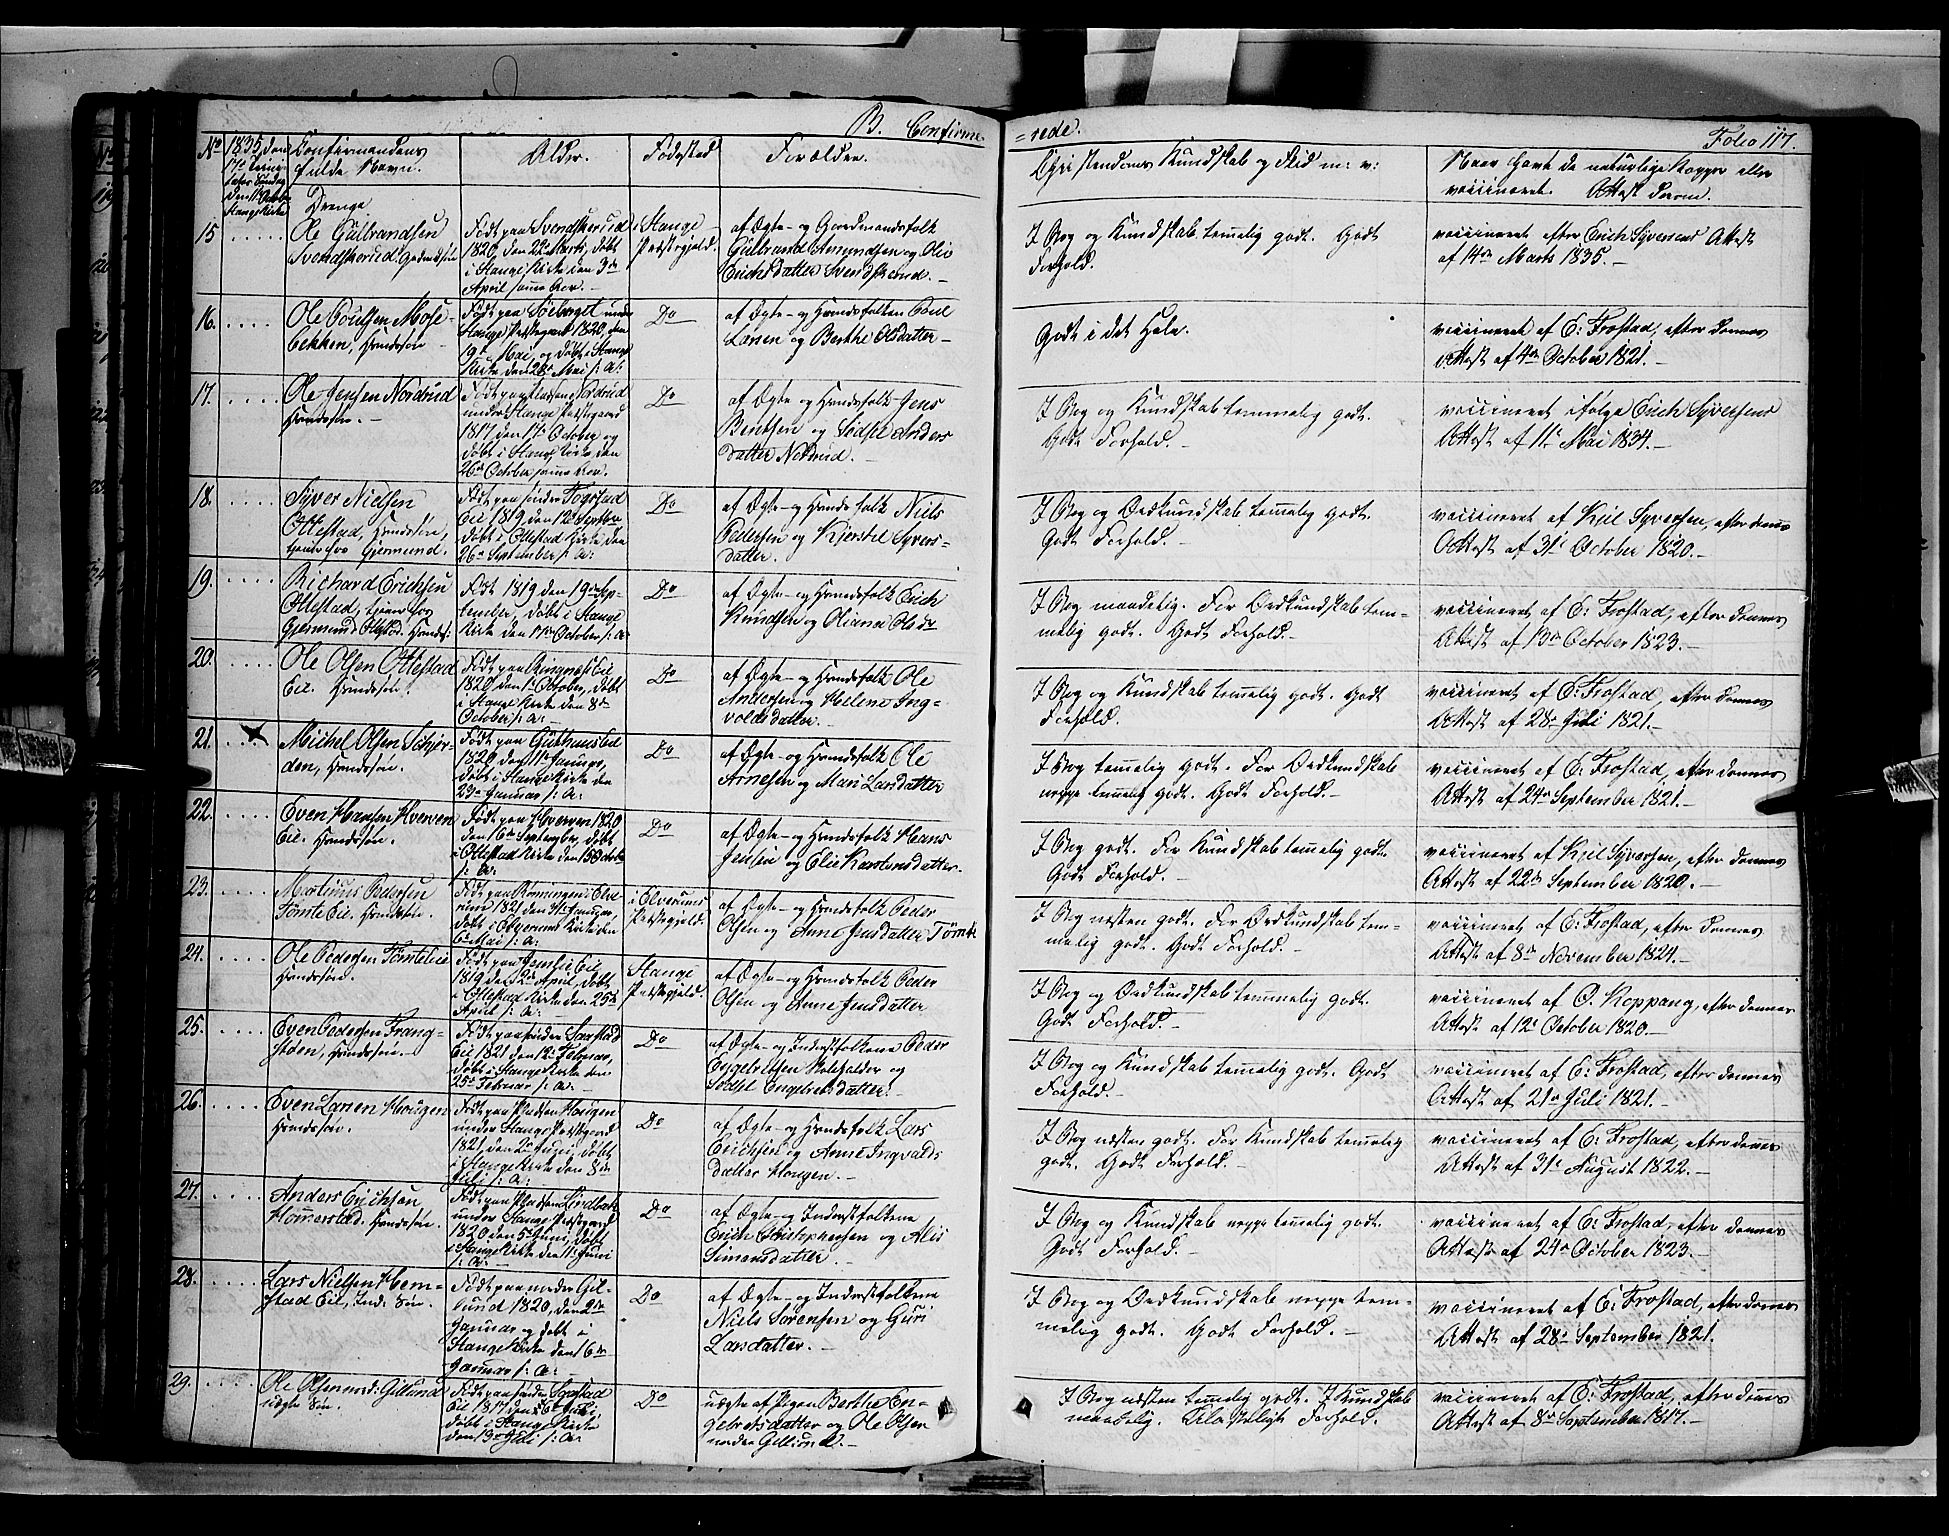 B. Confirme-
=rede.
Folio 117.
No
1835, den
17de Trini-
tatis Søndag
den 11te October
Stange Kirke
Confirmandens
fulde Navn.
Drenge
Alder.
Fødested
Forældre.
Christendoms Kundskab og Flid m: v:
Naar havt de naturlige Kopper eller
vaccineret. Attest derom.
15
Ole Gulbrandsen
Svendskerud. Gaardmdsøn
Født paa Svendskerud
1820, den 22de Marts, døbt
i Stange Kirke den 3de
April samme Aar.
i Stange
Præstegjeld.
af Ægte- og Gaardmandsfolk
Gulbrand Amundsen og Olie
Erichsdatter Svendskerud.-
I Bog og Kundskab temmelig godt. Godt
Forhold.
vaccineret efter Erich Syversens Attest
af 14de Marts 1835.-
16.
Ole Poulsen Mose-
bekken, Huusdssøn
Født paa Søeberget under
Stange Præstegaard 1820 den
19de Mai, og døbt i Stange
Kirke, den 28de Mai s: A:
Do
af Ægte- og Huusdsfolken Poul
Larsen og Berthe Olsdatter-
Godt i det Hele.
vaccineret af E: Frostad, efter dennes
Attest af 4de October 1821.-
17.
Ole Jensen Nordrud
Huusdssøn.-
Født paa Pladsen Nordrud
under Stange Præstegaard
1817 den 17de October og
døbt i Stange Kirke, den
26de October samme Aar.
Do
af Ægte og Huusdsfolk Jens
Bentsen og Sidsel Anders
datter Nordrud.-
I Bog og Kundskab temmelig godt.
Godt Forhold.-
vaccineret ifølge Erich Syversens
Attest af 11te Mai 1834.-
18.
Syver Nielsen
Ottestad, Huusdssøn,
tjener hos Gjermund.
Født paa søndre Fogstad
Eie 1819, den 12te Septbr,
døbt i Ottestad Kirke den
26de September s: A:
Do
af Ægte- og Huusdsfolk Niels
Pedersen og Kjersti Syvers-
datter.
I Bog og Ordkundskab temmelig godt.
Godt Forhold.-
vaccineret af Kiel Syversen, efter dennes
Attest af 31te October 1820.-
19.
Richard Erichsen
Ottestad, tjener hos
Gjermund Ottestad. Huusdss:
Født 1819 den 19de Sep-
tember, døbt i Stange
Kirke den 11te October, s: A:
Do
af Ægte- og Huusdsfolk Erich
Knudsen og Oliana Olsdr
I Bog maadelig. For Ordkundskab tem-
melig godt. Godt Forhold.-
vaccineret af E: Frostad, efter dennes
Attest af 13de October 1823.-
20.
Ole Olsen Ottestad
Eie. Huusdssøn.
Født paa Ringnæs Eie
1820 den 1te October, døbt
i Stange Kirke den 8de
October s: A:
Do
af Ægte- og Huusdsfolk Ole
Andersen og Helene Ing-
voldsdatter.-
I Bog og Kundskab temmelig godt. Godt
Forhold.
vaccineret af E: Frostad, efter dennes
Attest af 28de Juli 1821.-
21.
Michel Olsen Schjer-
den, Huusdssøn.
Født paa Guthuus Eie
1820, den 11te Januar,
døbt i Stange Kirke den
23de Januar s: A:
Do
af Ægte og Huusdsfolk Ole
Arnesen og Mari Larsdatter
I Bog temmelig godt. For Ordkundskab
neppe temmelig godt. Godt Forhold.-
vaccineret af E: Frostad, efter dennes
Attest af 24de September 1821.-
22.
Even Hansen Hverven
Eie. Huusdssøn.
Født paa Hverven 1820
den 16de September, døbt
i Ottestad Kirke den 15de Octb.
s: A:
Do
af Ægte- og Huusdsfolk Hans
Jensen og Elie Karstensdatter.
I Bog godt. For Kundskab temmelig godt.
Godt Forhold.-
vaccineret af Kjel Syversen, efter dennes
Attest af 22de September 1820.-
23.
Martinus Pedersen
Tømte Eie. Huusdssøn.
Født paa Rønningen i Elve-
rum 1821 den 31te Januar,
døbt i Elverums Kirke den
6te Mai s: A:
i Elverums
Præstegjeld.
af Ægte- og Huusdsfolk Peder
Olsen og Anne Jensdatter Tømte
I Bog næsten godt. For Ordkundskab tem-
melig godt. Godt Forhold.-
vaccineret af E: Frostad, efter dennes
Attest af 8de November 1824.-
24.
Ole Pedersen Tømte Eie
Huusdssøn.
Født paa Jemlie Eie
1819 den 12te April, døbt
i Ottestad Kirke den 25de
April s: A:
Stange
Præstegjeld.
af Ægte- og Huusdsfolk Peder
Olsen og Anne Jensdatter
I Bog og Ordkundskab temmelig godt.
Godt Forhold.-
vaccineret af O. Koppang, efter dennes
Attest af 12te October 1820.-
25.
Even Pedersen Frang-
støen, Huusdssøn.
Født paa søndre Saxstad
Eie 1821 den 12te Februar,
døbt i Stange Kirke den
25de Februar s: A:
Do
af Ægte- og Inderstfolkene Peder
Engebretsen Myhalder og
Sidsel Engebretsdatter.-
I Bog og Kundskab temmelig godt. Godt
Forhold.-
vaccineret af E: Frostad, efter dennes
Attest af 21de Juli 1821.-
26.
Even Larsen Hougen
Huusdssøn.
Født paa Pladsen Hougen
under Stange Præstegaard
1821, den 2den Juni, døbt
i Stange Kirke den 8de
Juli s: A:
Do
af Ægte- og Huusdsfolk Lars
Erichsen og Anne Ingvalds
datter Hougen.-
I Bog næsten godt. For Kundskab temmelig
godt. Godt Forhold.-
vaccineret af E: Frostad, efter dennes
Attest af 31te August 1822.-
27.
Anders Erichsen
Hommerstad. Huusdssøn.
Født paa Pladsen Lindbak
under Stange Præstegaard
1820 den 5te Juni, døbt
i Stange Kirke den 11te Juni
s: A:
Do
af Ægte- og Inderstfolkene
Erich Christophersen og Alis
Simensdatter.-
I Bog og Kundskab neppe temmelig godt.
Godt Forhold.-
vaccineret af E: Frostad, efter dennes
Attest af 24de October 1823.-
28.
Lars Nielsen Hom-
stad Eie, Ind: Søn.
Født paa nordre Gil-
lund 1820, den 2den
Januar og døbt i
Stange Kirke den 16de
Januar s: A:
Do
af Ægte- og Inderstfolkene
Niels Sørensen og Guri
Larsdatter.-
I Bog og Ordkundskab neppe tem-
melig godt. Godt Forhold.-
vaccineret af E: Frostad, efter dennes
Attest af 28de September 1821.
29.
Ole Olsen nord: Gillund
uægte Søn.
Født paa søndre Saxstad
Eie 1817 den 6te Juli
døbt i Stange Kirke
den 13de Juli s: A:
Do
uægte af Pigen Berthe En-
gebretsdatter og Ole Olsen
nordre Gillund.-
I Bog næsten temmelig godt. I Kundskab
maadelig. Forhold.
vaccineret af E: Frostad, efter dennes
Attest af 8de September 1817.-